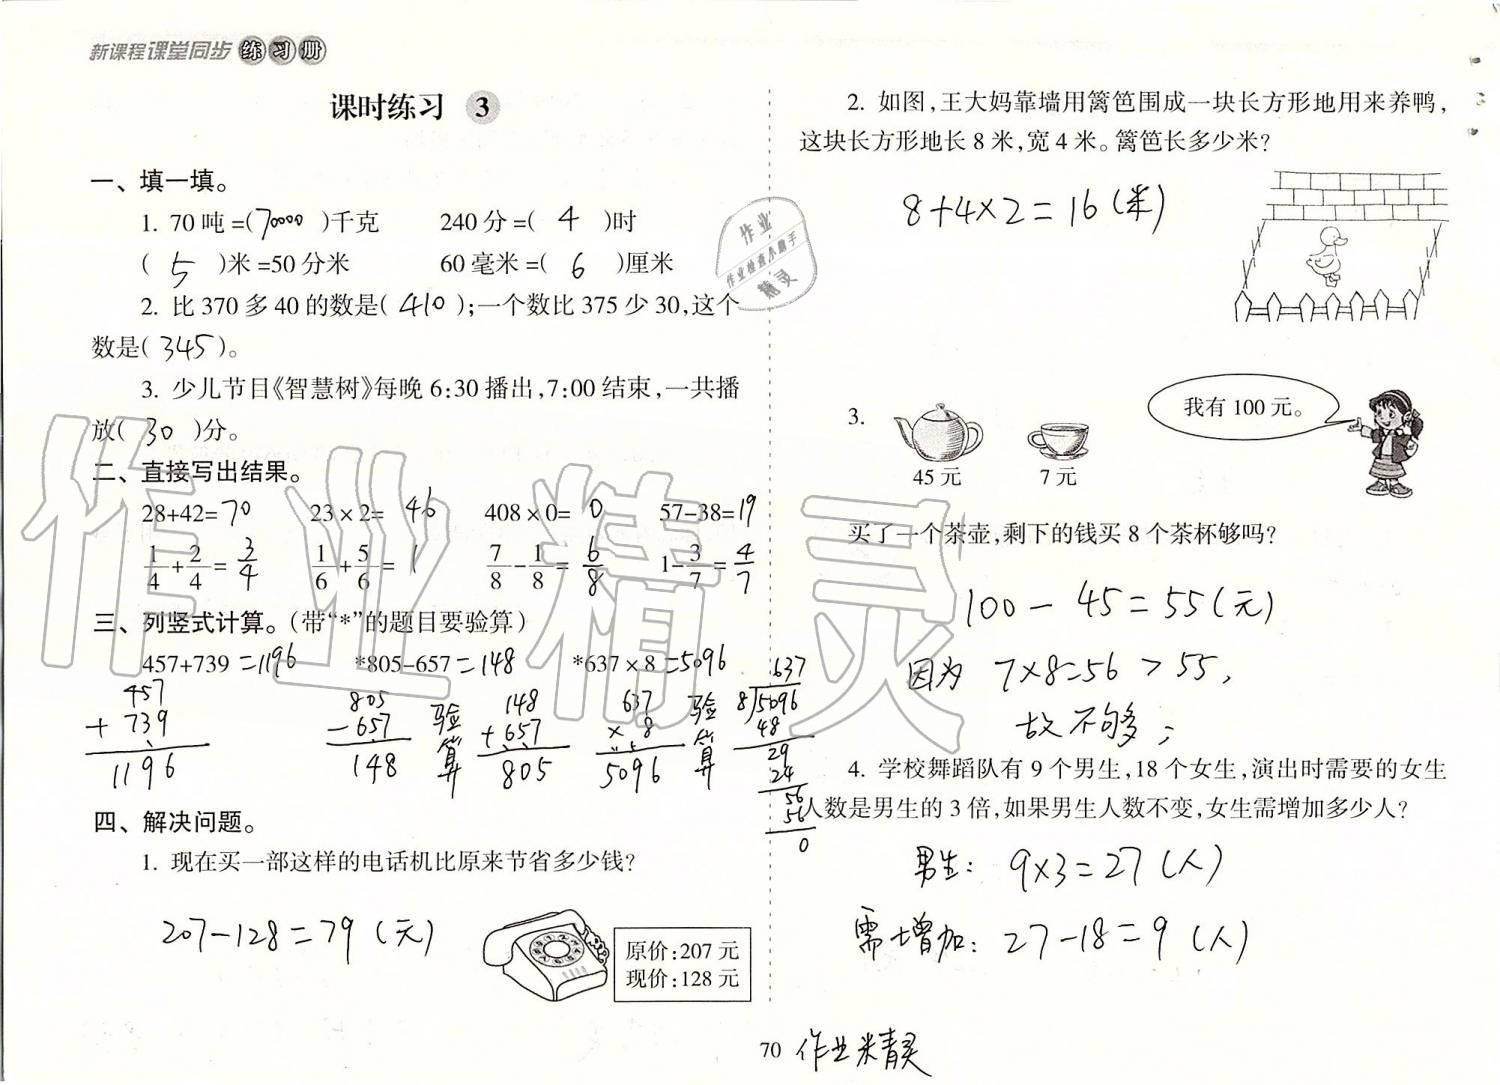 新课程课堂同步练习册
课时练习 3
一、填一填。
1. 70吨=(70000)千克 240分=(4)时
(5)米=50分米 60毫米=(6)厘米
2. 比370多40的数是(410);一个数比375少30,这个
数是(345)。
3. 少儿节目《智慧树》每晚6:30播出,7:00结束,一共播
放(30)分。
二、直接写出结果。
28+42=70 23×2=46 408×0=0 57-38=19
1/4+2/4=3/4 1/6+5/6=1 7/8-1/8=6/8 1-3/7=4/7
三、列竖式计算。(带“*”的题目要验算)
457+739=1196 *805-657=148 *637×8=5096
457
+739
1196
805
-657
148
验算
148
+657
805
637
× 8
5096
验算
637
8)5096
48
29
24
56
56
0
四、解决问题。
1. 现在买一部这样的电话机比原来节省多少钱?
207-128=79(元)
原价:207元
现价:128元
2. 如图,王大妈靠墙用篱笆围成一块长方形地用来养鸭,
这块长方形地长8米,宽4米。篱笆长多少米?
8+4×2=16(米)
3.
45元 7元
我有100元。
买了一个茶壶,剩下的钱买8个茶杯够吗?
100-45=55(元)
因为 7×8=56>55,
故不够;
4. 学校舞蹈队有9个男生,18个女生,演出时需要的女生
人数是男生的3倍,如果男生人数不变,女生需增加多少人?
男生: 9×3=27(人)
需增加: 27-18=9(人)
70 作业精灵
作业
作业检查小助手
精灵
作业精灵